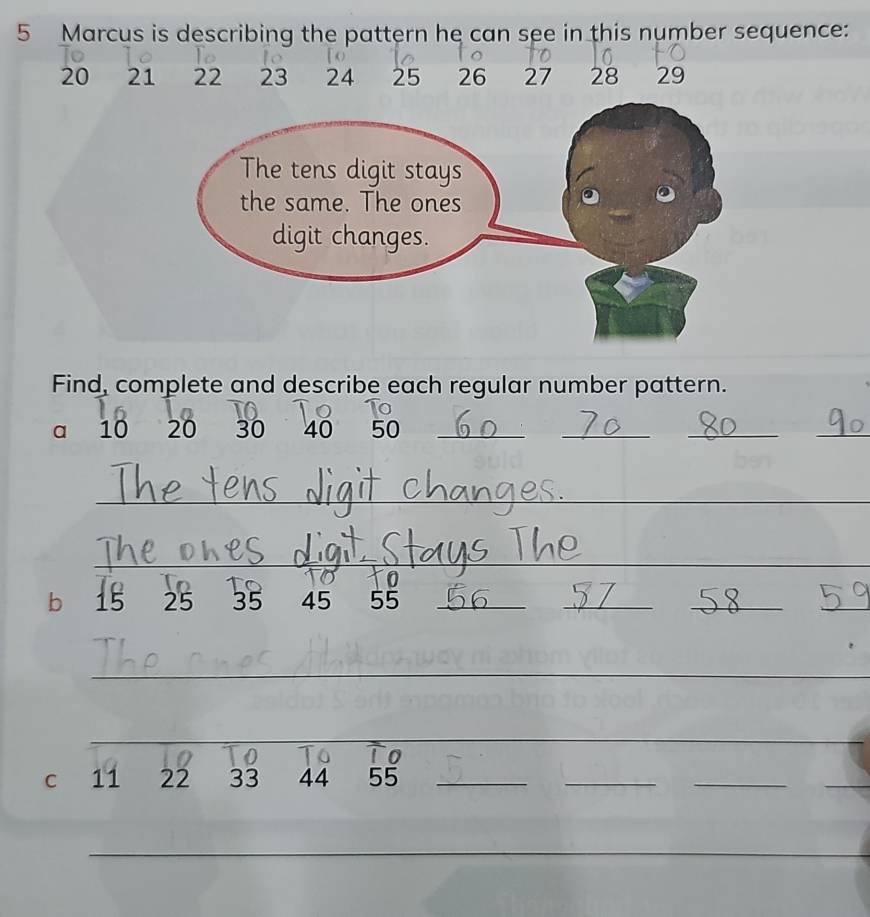 5 Marcus is describing the pattern he can see in this number sequence:
To To To To To To To To To To
20 21 22 23 24 25 26 27 28 29
The tens digit stays
the same. The ones
digit changes.
Find, complete and describe each regular number pattern.
To To To To To
a 10 20 30 40 50 60 70 80 90
The tens digit changes.
The ones digit stays The
To To To To To
b 15 25 35 45 55 56 57 58 59
The ones
To To To To To
c 11 22 33 44 55 5